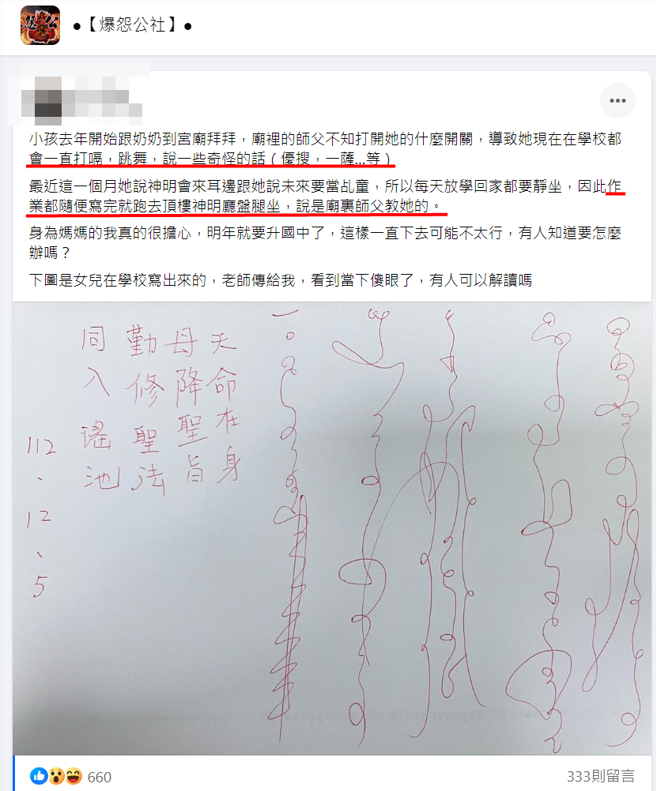 ●【爆怨公社】●
小孩去年開始跟奶奶到宮廟拜拜，廟裡的師父不知打開她的什麼開關，導致她現在在學校都
會一直打嗝，跳舞，說一些奇怪的話（優搜，一薩...等）
最近這一個月她說神明會來耳邊跟她說未來要當乩童，所以每天放學回家都要靜坐，因此作
業都隨便寫完就跑去頂樓神明廳盤腿坐，說是廟裏師父教她的。
身為媽媽的我真的很擔心，明年就要升國中了，這樣一直下去可能不太行，有人知道要怎麼
辦嗎？
下圖是女兒在學校寫出來的，老師傳給我，看到當下傻眼了，有人可以解讀嗎
天命在身
母降聖旨
勤修聖法
同入瑤池
112、12、5
660
333則留言